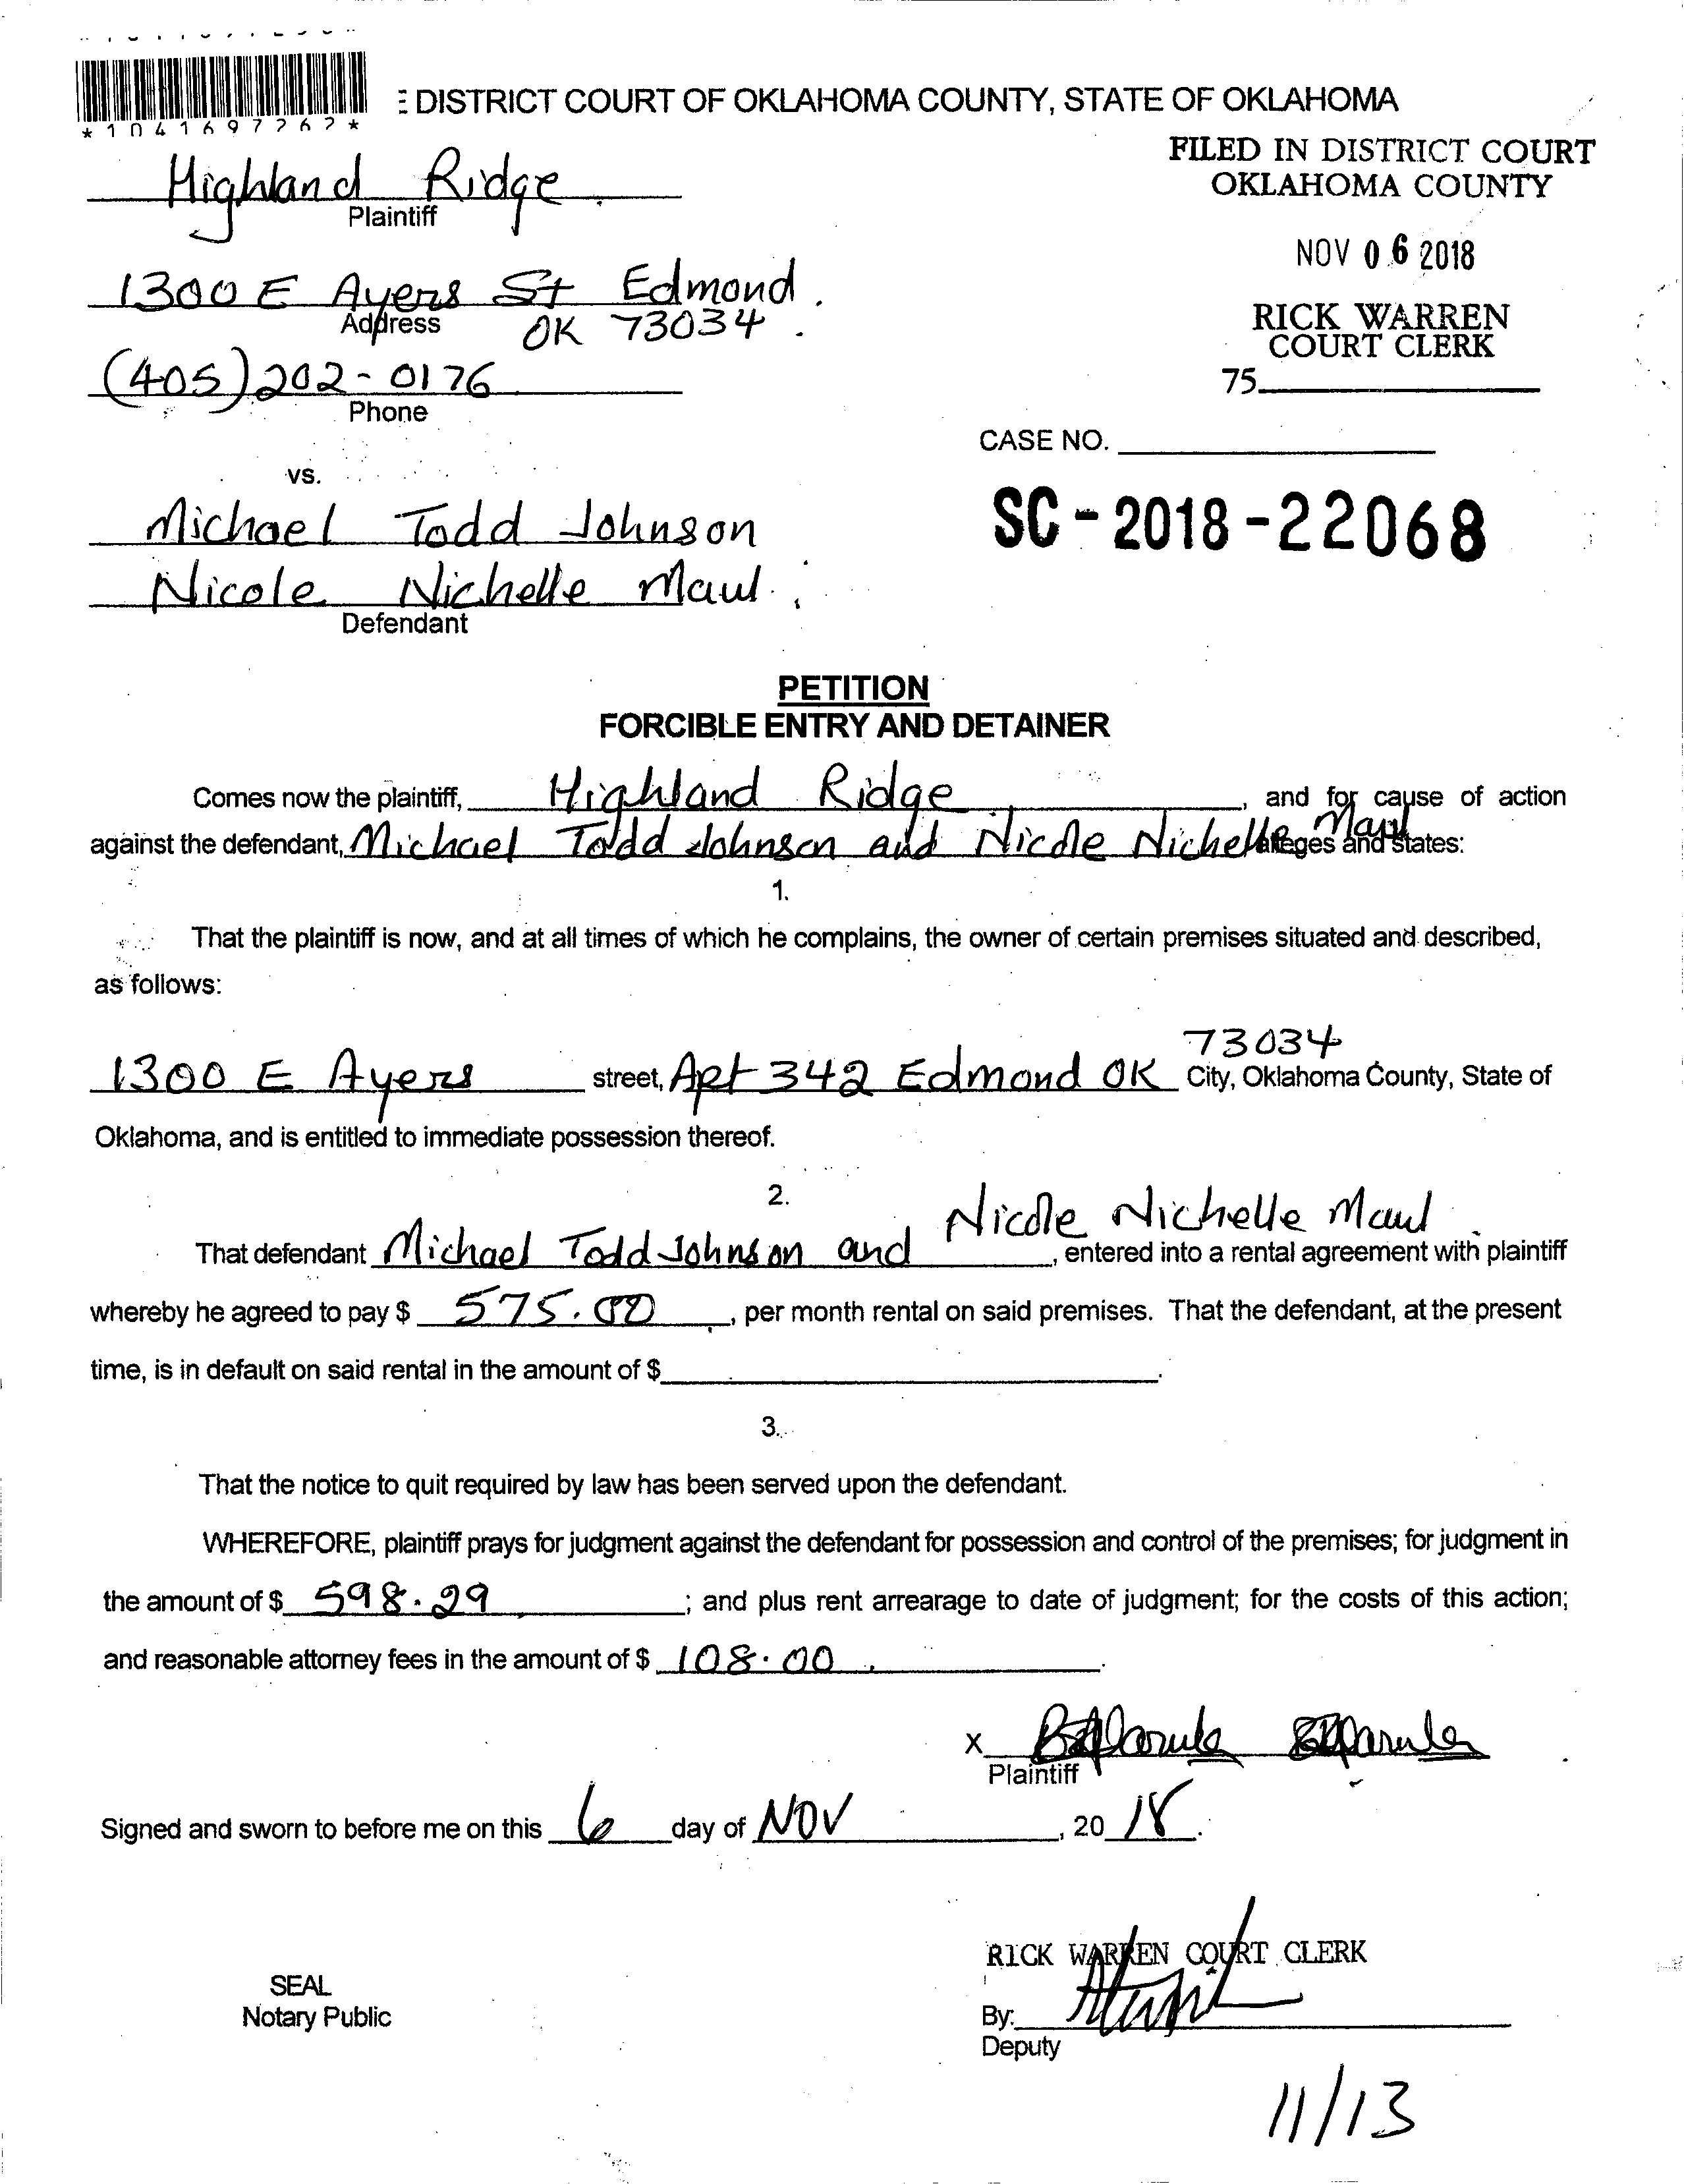 DISTRICT COURT OF OKLAHOMA COUNTY, STATE OF OKLAHOMA
*1041697262*
FILED IN DISTRICT COURT
OKLAHOMA COUNTY
Highland Ridge
Plaintiff
NOV 06 2018
1300 E Ayers St Edmond
Address OK 73034
RICK WARREN
COURT CLERK
75
(405) 202-0176
Phone
CASE NO.
vs.
SC-2018-22068
Michael Todd Johnson
Nicole Nichelle Maul
Defendant
PETITION
FORCIBLE ENTRY AND DETAINER
Comes now the plaintiff, Highland Ridge, and for cause of action
against the defendant, Michael Todd Johnson and Nicole Nichelle Maul alleges and states:
1.
That the plaintiff is now, and at all times of which he complains, the owner of certain premises situated and described,
as follows:
73034
1300 E Ayers street, Apt 342 Edmond OK City, Oklahoma County, State of
Oklahoma, and is entitled to immediate possession thereof.
2.
That defendant Michael Todd Johnson and Nicole Nichelle Maul, entered into a rental agreement with plaintiff
whereby he agreed to pay $ 575.00, per month rental on said premises. That the defendant, at the present
time, is in default on said rental in the amount of $
3.
That the notice to quit required by law has been served upon the defendant.
WHEREFORE, plaintiff prays for judgment against the defendant for possession and control of the premises; for judgment in
the amount of $ 598.29; and plus rent arrearage to date of judgment; for the costs of this action;
and reasonable attorney fees in the amount of $ 108.00.
X
Plaintiff
Signed and sworn to before me on this 6 day of NOV, 2018.
RICK WARREN COURT CLERK
SEAL
Notary Public
By:
Deputy
11/13